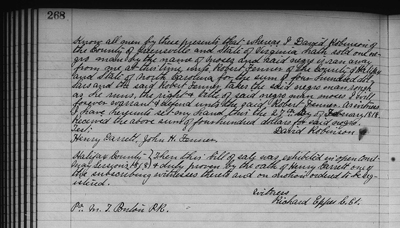 268
Know all men by these presents that whereas I David Robinson of
the County of Greensville and State of Virginia hath sold one ne-
gro man by the name of Moses and said negro is ran away
from me at this time unto Robert Fenner of the County of Halifax
and State of North Carolina for the sum of four hundred dol-
lars and the said Robert Fenner takes the said negro man Moses
as he runs, the right & title of said negro man Moses I will
forever warrant & defend unto the said Robert Fenner
I have hereunto set my hand this the 27th day of February 1818
received the above sum of four hundred dollars for said negro.
Test: David Robinson
Henry Garrett, John H. Fenner
Halifax County— } Then this bill of sale was exhibited in open Court
and duly proven by the oath of Henry Garrett one of
the subscribing witnesses thereto and on motion ordered to be reg-
istered.
Witness
Richard Eppes C. Ct.
Pr. M. T. Ponton P.R.